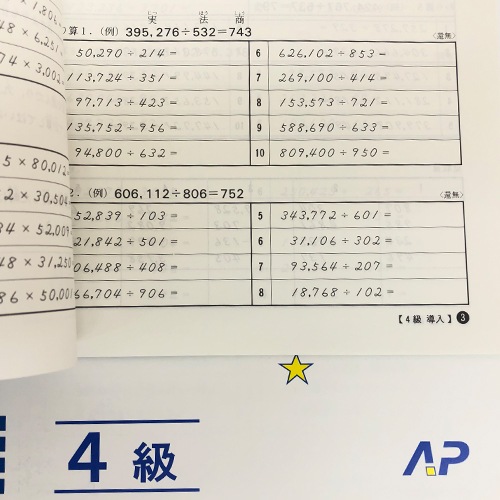 1,806=
48 × 6,251=
74 × 3,002=
5 × 80,012=
2 × 30,504
34 × 52,009
48 × 31,250
86 × 50,001
じつ ほう しょう
実 法 商
算1.（例）395,276÷532=743 〈還無〉
50,290 ÷ 214 =
113,724 ÷ 351 =
97,713 ÷ 423 =
135,752 ÷ 956 =
94,800 ÷ 632 =
6 626,102 ÷ 853 =
7 269,100 ÷ 414 =
8 153,573 ÷ 721 =
9 588,690 ÷ 633 =
10 809,400 ÷ 950 =
2.（例）606,112÷806=752 〈還無〉
52,839 ÷ 103 =
21,842 ÷ 501 =
06,488 ÷ 408 =
66,704 ÷ 906 =
5 343,772 ÷ 601 =
6 31,106 ÷ 302 =
7 93,564 ÷ 207 =
8 18,768 ÷ 102 =
【4級 導入】3
4級
AP